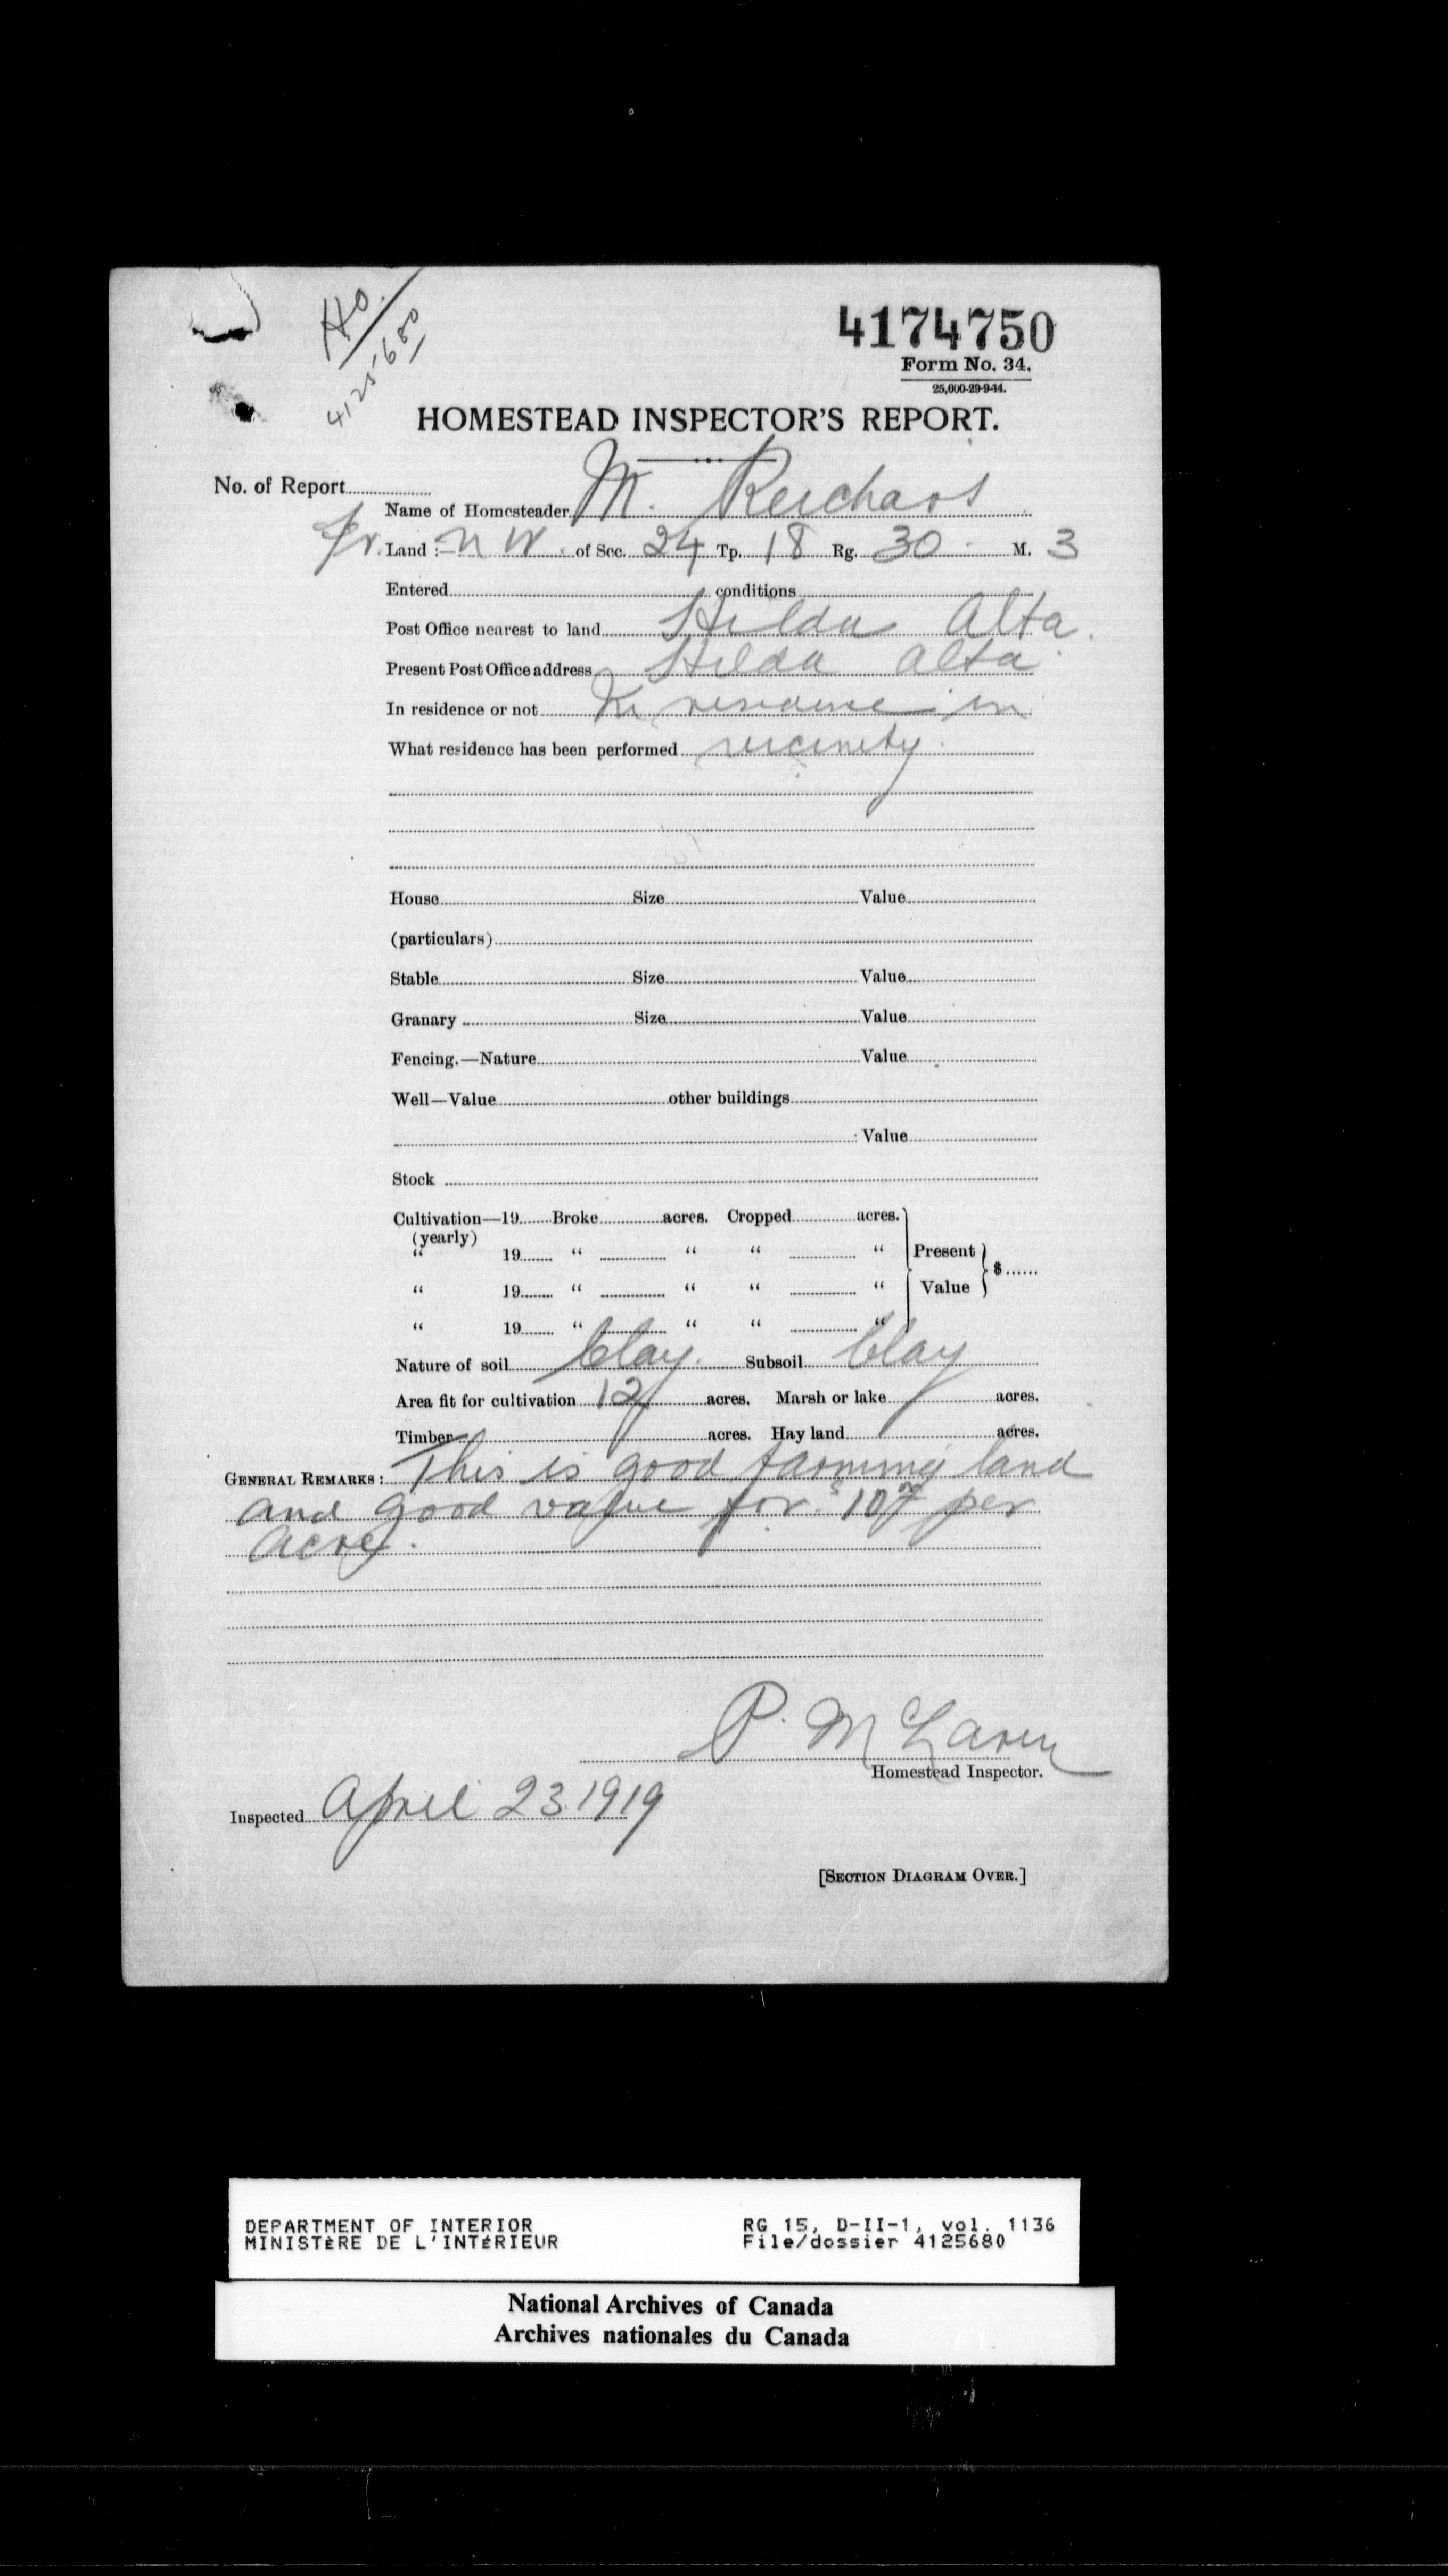 Ho
4125680
4174750
Form No. 34.
25,000-29-9-14.
HOMESTEAD INSPECTOR'S REPORT.
No. of Report
Name of Homesteader M. Reichart
Fr. Land :— N W. of Sec. 24 Tp. 18 Rg. 30 M. 3
Entered conditions
Post Office nearest to land Hilda Alta.
Present Post Office address Hilda Alta.
In residence or not In residence in
What residence has been performed vicinity.
House Size Value
(particulars)
Stable Size Value
Granary Size Value
Fencing.—Nature Value
Well—Value other buildings
Value
Stock
Cultivation—19 Broke acres. Cropped acres.
(yearly)
" 19 " " " " Present
$
" 19 " " " " Value
" 19 " " " "
Nature of soil Clay. Subsoil Clay
Area fit for cultivation 12 acres. Marsh or lake acres.
Timber acres. Hay land acres.
GENERAL REMARKS: This is good farming land
and good value for per
acre.
P. McLaren
Homestead Inspector.
Inspected April 23 1919
[SECTION DIAGRAM OVER.]
DEPARTMENT OF INTERIOR RG 15, D-II-1, vol. 1136
MINISTÈRE DE L'INTÉRIEUR File/dossier 4125680
National Archives of Canada
Archives nationales du Canada